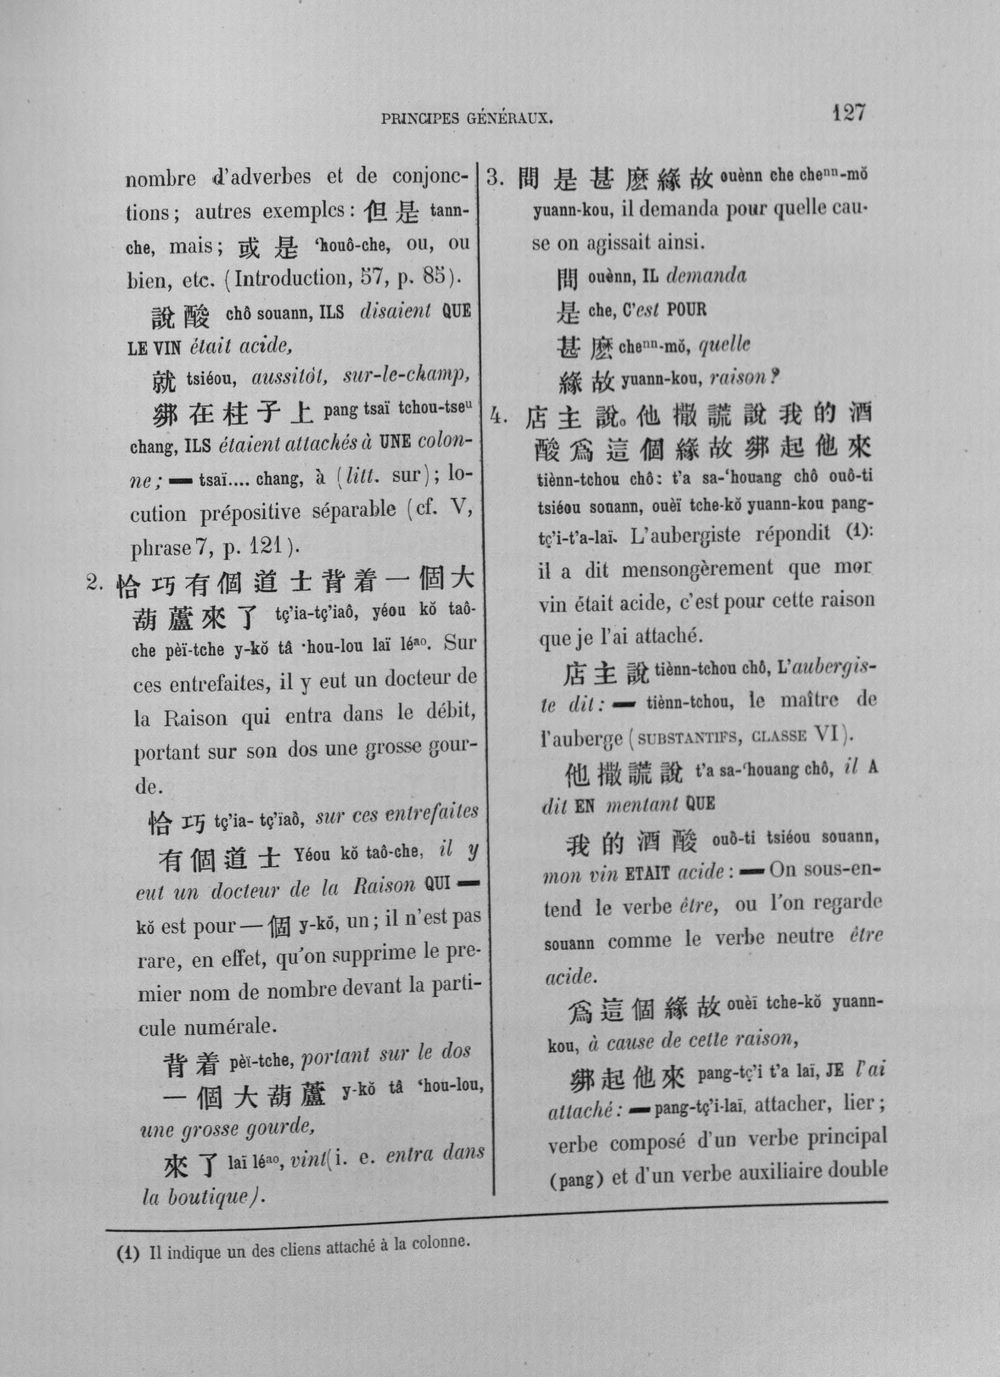 PRINCIPES GÉNÉRAUX.
127
nombre d'adverbes et de conjonc-
tions; autres exemples: 但是 tann-
che, mais; 或是 'houô-che, ou, ou
bien, etc. (Introduction, 57, p. 85).
說酸 chô souann, ILS disaient QUE
LE VIN était acide,
就 tsiéou, aussitôt, sur-le-champ,
綁在柱子上 pang tsaï tchou-tseᵘ
chang, ILS étaient attachés à UNE colon-
ne; — tsaï.... chang, à (litt. sur); lo-
cution prépositive séparable (cf. V,
phrase 7, p. 121).
2. 恰巧有個道士背着一個大
葫蘆來了 tç'ia-tç'iaô, yéou kŏ taô-
che pèï-tche y-kŏ tâ 'hou-lou laï léᵃᵒ. Sur
ces entrefaites, il y eut un docteur de
la Raison qui entra dans le débit,
portant sur son dos une grosse gour-
de.
恰巧 tç'ia- tç'ïaô, sur ces entrefaites
有個道士 Yéou kŏ taô-che, il y
eut un docteur de la Raison QUI —
kŏ est pour 一個 y-kŏ, un; il n'est pas
rare, en effet, qu'on supprime le pre-
mier nom de nombre devant la parti-
cule numérale.
背着 pèï-tche, portant sur le dos
一個大葫蘆 y-kŏ tâ 'hou-lou,
une grosse gourde,
來了 laï léᵃᵒ, vint (i. e. entra dans
la boutique).
3. 問是甚麽緣故 ouènn che cheⁿⁿ-mŏ
yuann-kou, il demanda pour quelle cau-
se on agissait ainsi.
問 ouènn, IL demanda
是 che, C'est POUR
甚麽 cheⁿⁿ-mŏ, quelle
緣故 yuann-kou, raison?
4. 店主說。他撒謊說我的酒
酸爲這個緣故綁起他來
tiènn-tchou chô: t'a sa-'houang chô ouô-ti
tsiéou souann, ouèï tche-kŏ yuann-kou pang-
tç'i-t'a-laï. L'aubergiste répondit (1):
il a dit mensongèrement que mon
vin était acide, c'est pour cette raison
que je l'ai attaché.
店主說 tiènn-tchou chô, L'aubergis-
te dit: — tiènn-tchou, le maître de
l'auberge (SUBSTANTIFS, CLASSE VI).
他撒謊說 t'a sa-'houang chô, il A
dit EN mentant QUE
我的酒酸 ouô-ti tsiéou souann,
mon vin ETAIT acide: — On sous-en-
tend le verbe être, ou l'on regarde
souann comme le verbe neutre être
acide.
爲這個緣故 ouèï tche-kŏ yuann-
kou, à cause de cette raison,
綁起他來 pang-tç'i t'a laï, JE l'ai
attaché: — pang-tç'i-laï, attacher, lier;
verbe composé d'un verbe principal
(pang) et d'un verbe auxiliaire double
(1) Il indique un des cliens attaché à la colonne.